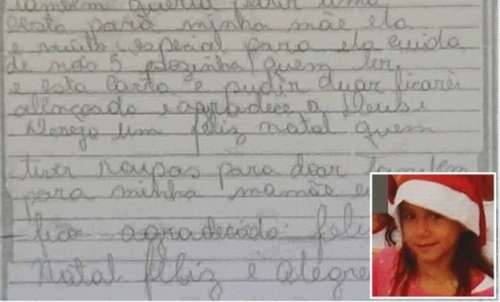 também queria pedir uma
cesta para minha mãe ela
e muito especial para ela cuida
de nois 5 sozinha quem ler
e esta carta e pudir duar ficarei
abençoado e agradece a Deus
Desejo um feliz natal quem
tiver roupas para doar também
para minha mamãe e
fico agradecido feli
Natal feliz e alegre